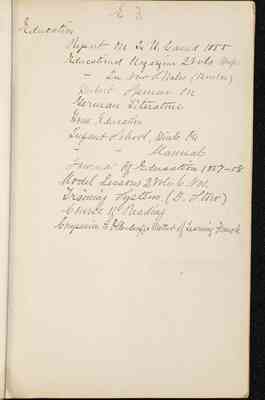 E 3
Education
Report On In U. Canad 1855
Educational Magazine 2 Vols
" In New S Wales (Rusden)
Herbert Spencer On
German Literature
Home Education
Infant School, Hints On
" " Manual
Journal Of Education 1857-58
Model Lessons 2 Vols 6 Nos.
Training System (D. Stow)
Course Of Reading
Companion to Ollendorff's Method of Learning French